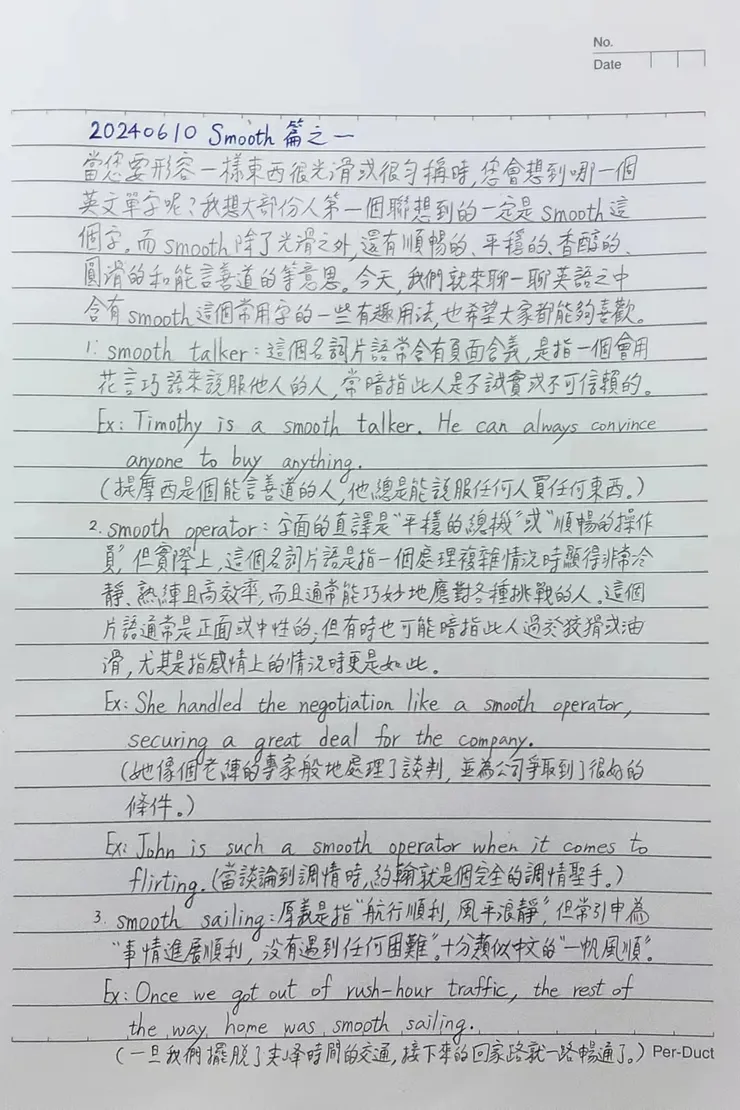 No.
Date
20240610 Smooth 篇之一
當您要形容一樣東西很光滑或很勻稱時,您會想到哪一個
英文單字呢?我想大部份人第一個聯想到的一定是smooth這
個字。而smooth除了光滑之外,還有順暢的、平穩的、香醇的、
圓滑的和能言善道的等意思。今天,我們就來聊一聊英語之中
含有smooth這個常用字的一些有趣用法,也希望大家都能夠喜歡。
1. smooth talker:這個名詞片語常含有負面含義,是指一個會用
花言巧語來說服他人的人,常暗指此人是不誠實或不可信賴的。
Ex: Timothy is a smooth talker. He can always convince
anyone to buy anything.
(提摩西是個能言善道的人,他總是能說服任何人買任何東西。)
2. smooth operator:字面的直譯是"平穩的總機"或"順暢的操作
員",但實際上,這個名詞片語是指一個處理複雜情況時顯得非常冷
靜、熟練且高效率,而且通常能巧妙地應對各種挑戰的人。這個
片語通常是正面或中性的,但有時也可能暗指此人過於狡猾或油
滑,尤其是指感情上的情況時更是如此。
Ex: She handled the negotiation like a smooth operator,
securing a great deal for the company.
(她像個老練的專家般地處理了談判,並為公司爭取到了很好的
條件。)
Ex: John is such a smooth operator when it comes to
flirting.(當談論到調情時,約翰就是個完全的調情聖手。)
3. smooth sailing:原義是指"航行順利,風平浪靜",但常引申為
"事情進展順利,沒有遇到任何困難"。十分類似中文的"一帆風順"。
Ex: Once we got out of rush-hour traffic, the rest of
the way home was smooth sailing.
(一旦我們擺脫了尖峰時間的交通,接下來的回家路就一路暢通了。) Per-Duct